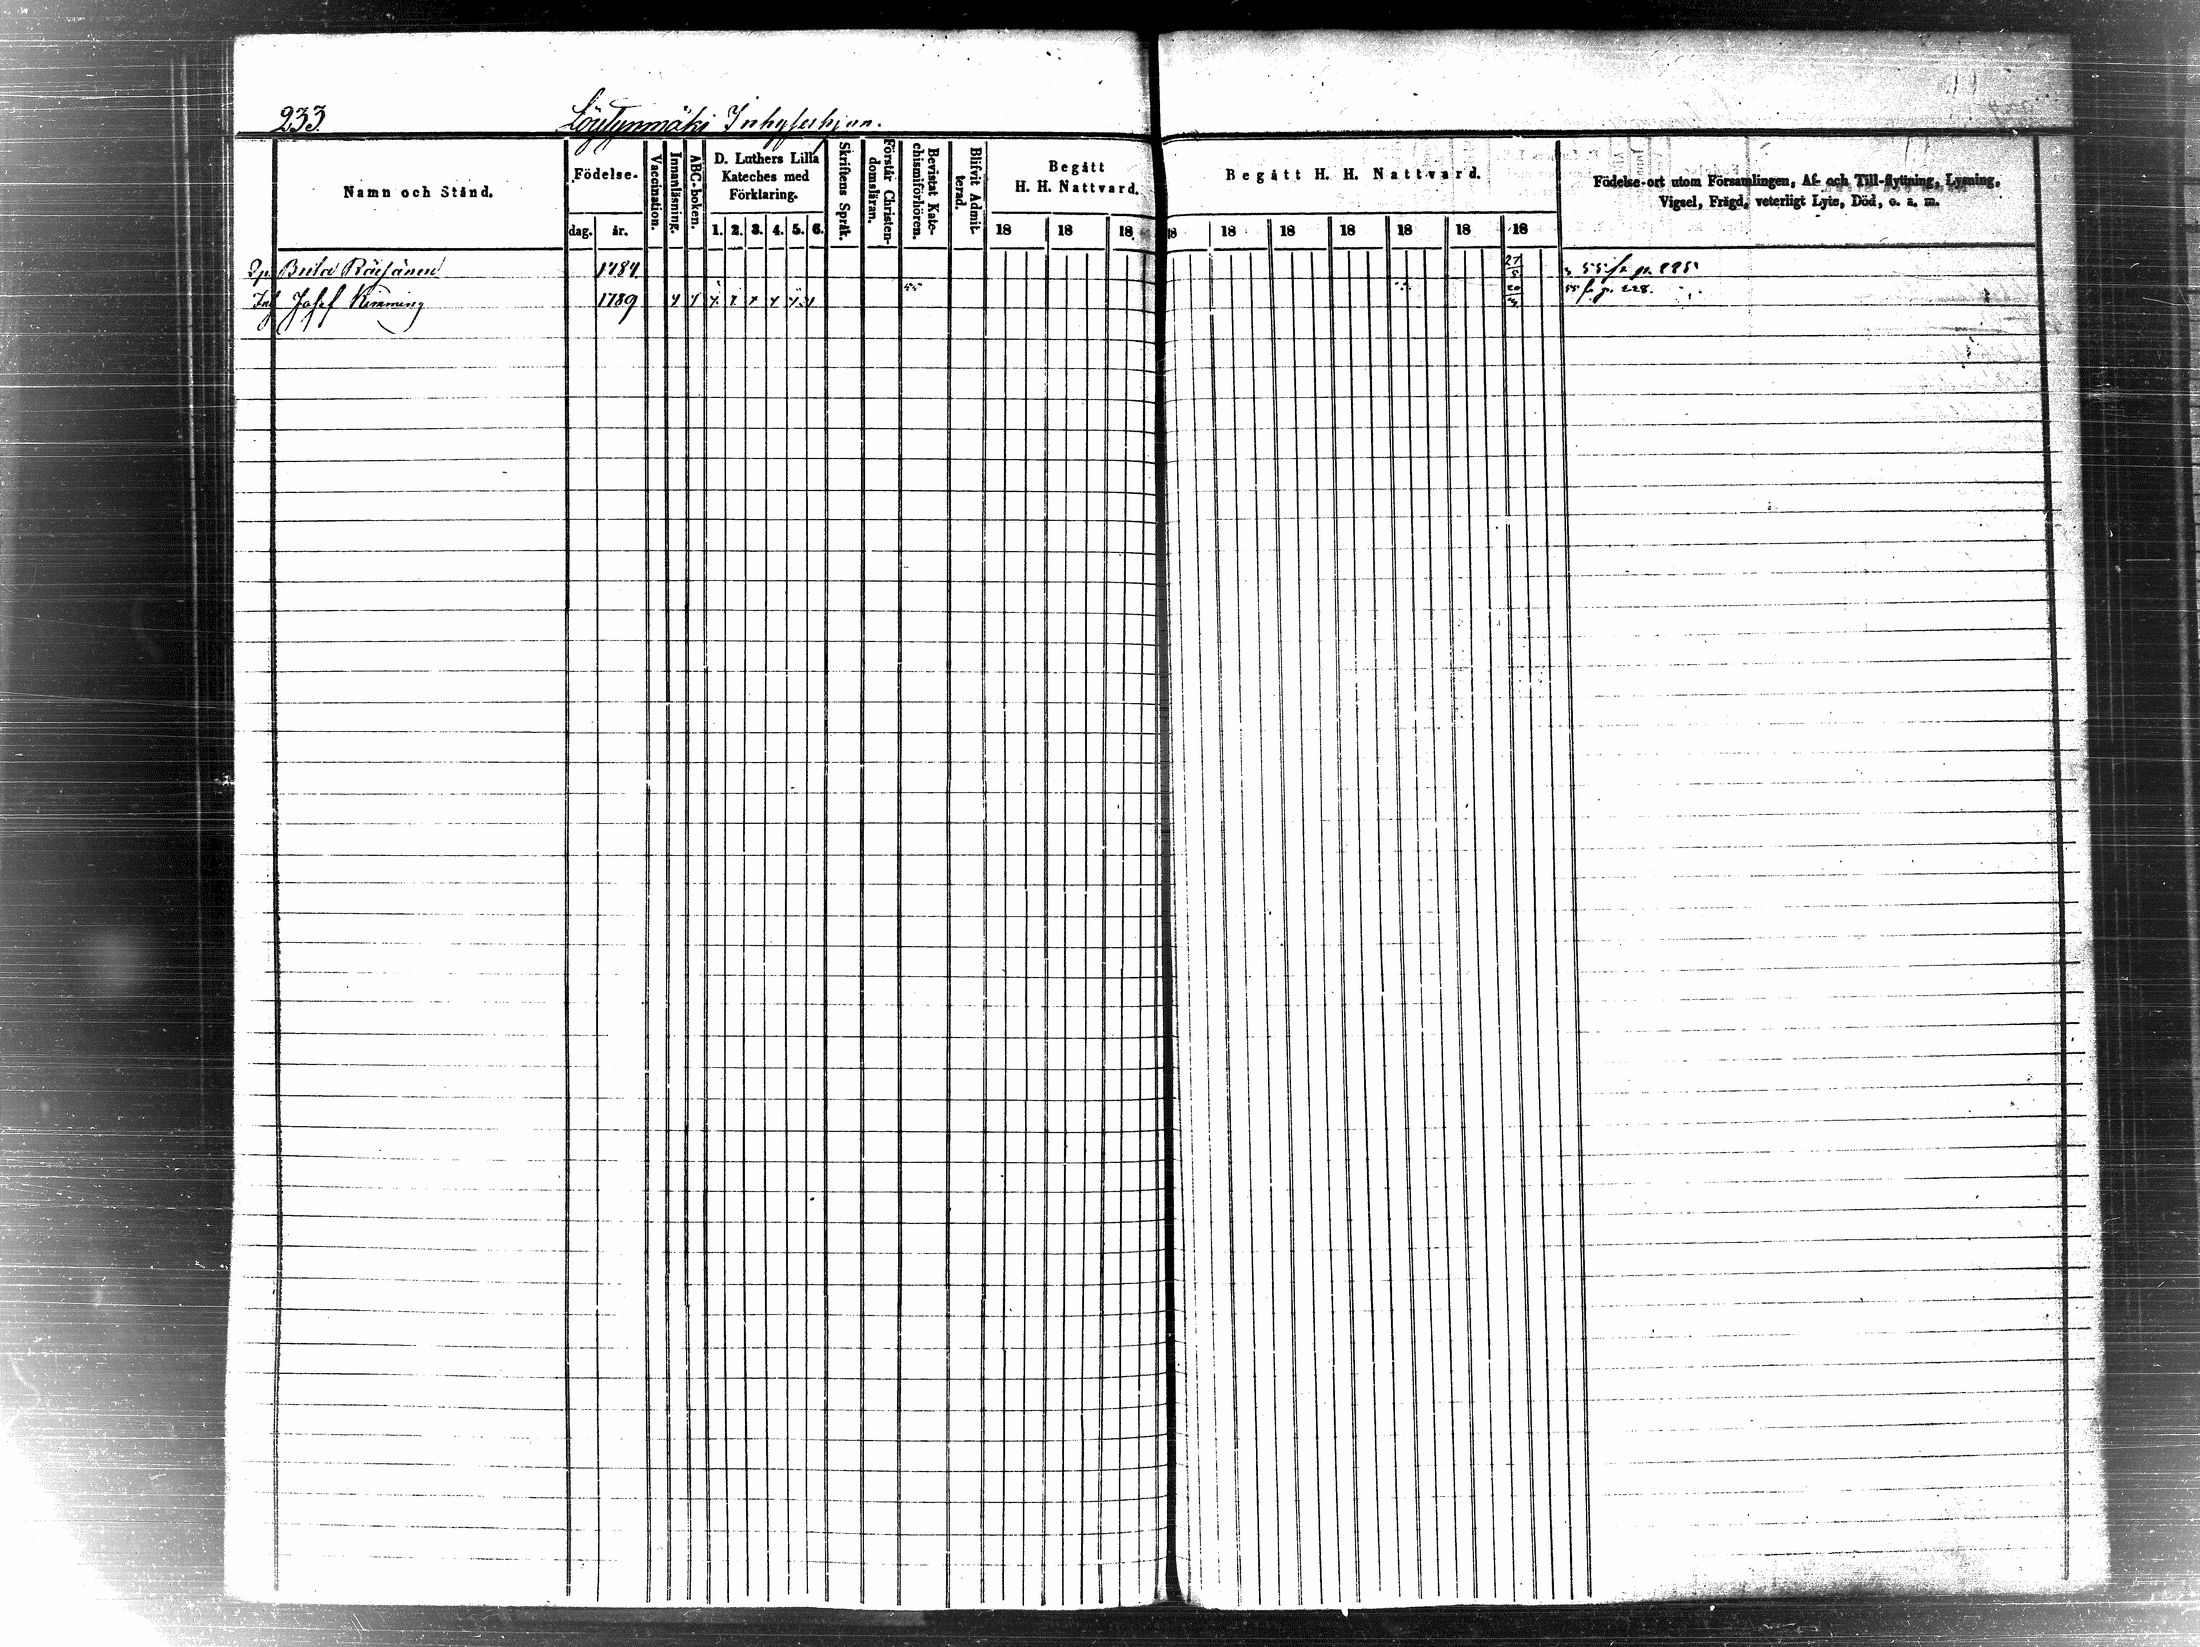 233.
Löytynmäki Inhysehjon.
Namn och Stånd.
Födelse-
dag. år.
Vaccination.
Innanläsning.
ABC-boken.
D. Luthers Lilla
Kateches med
Förklaring.
1. 2. 3. 4. 5. 6.
Skriftens Språk.
Förstår Christen-
domsläran.
Bevistat Kate-
chismiförhören.
Blifvit Admit-
terad.
Begått
H. H. Nattvard.
18 18 18
Begått H. H. Nattvard.
18 18 18 18 18 18 18
Födelse-ort utom Församlingen, Af- och Till-flyttning, Lysning,
Vigsel, Frägd, veterligt Lyte, Död, o. a. m.
Brita Räisänen 1784 27/5 55 fr. p. 225
Inh Josef Kimming 1789 55 55 fr. p. 228.